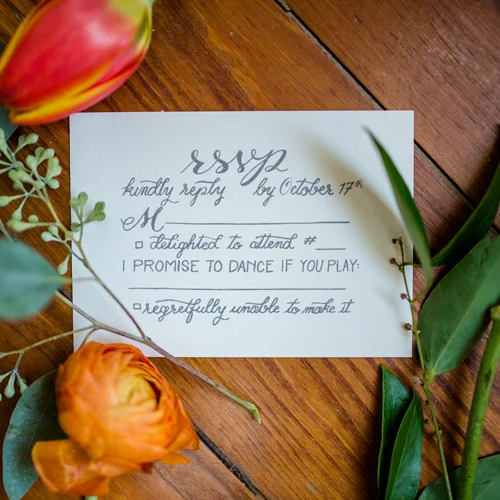 rsvp
kindly reply by October 17th
M
delighted to attend #
I PROMISE TO DANCE IF YOU PLAY:
regretfully unable to make it